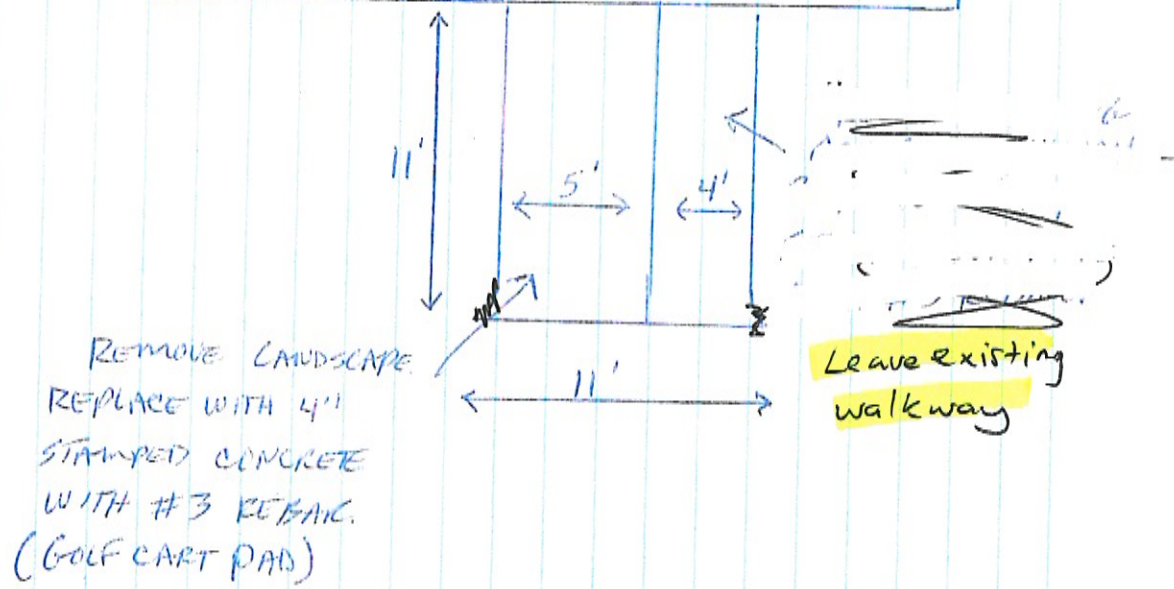 11'
5'
4'
11'
REMOVE LANDSCAPE
REPLACE WITH 4"
STAMPED CONCRETE
WITH #3 REBAR.
(GOLF CART PAD)
Leave existing
walkway